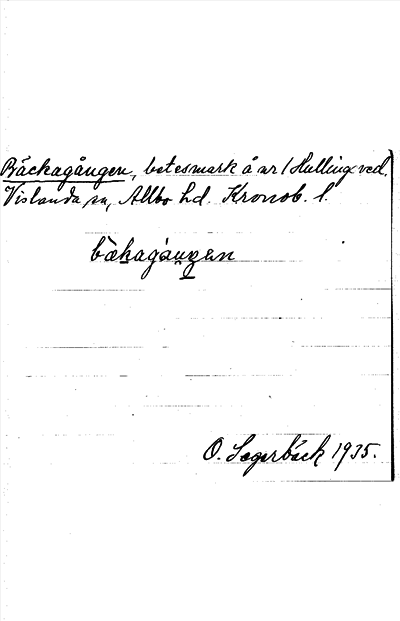 Bäckagången, betesmark å nr 1 Hullingsved,
Vislanda sn, Allbo hd. Kronob. l.
bäkagåŋen
O. Segerbäck 1935.